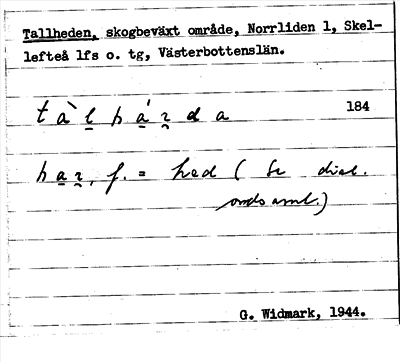 Tallheden, skogbeväxt område, Norrliden 1, Skel-
lefteå lfs o. tg, Västerbottenslän.
184
tàl̠ há̠ʐda
ha̠ʐ, f. = hed ( Se dial.
ordsaml.)
G. Widmark, 1944.